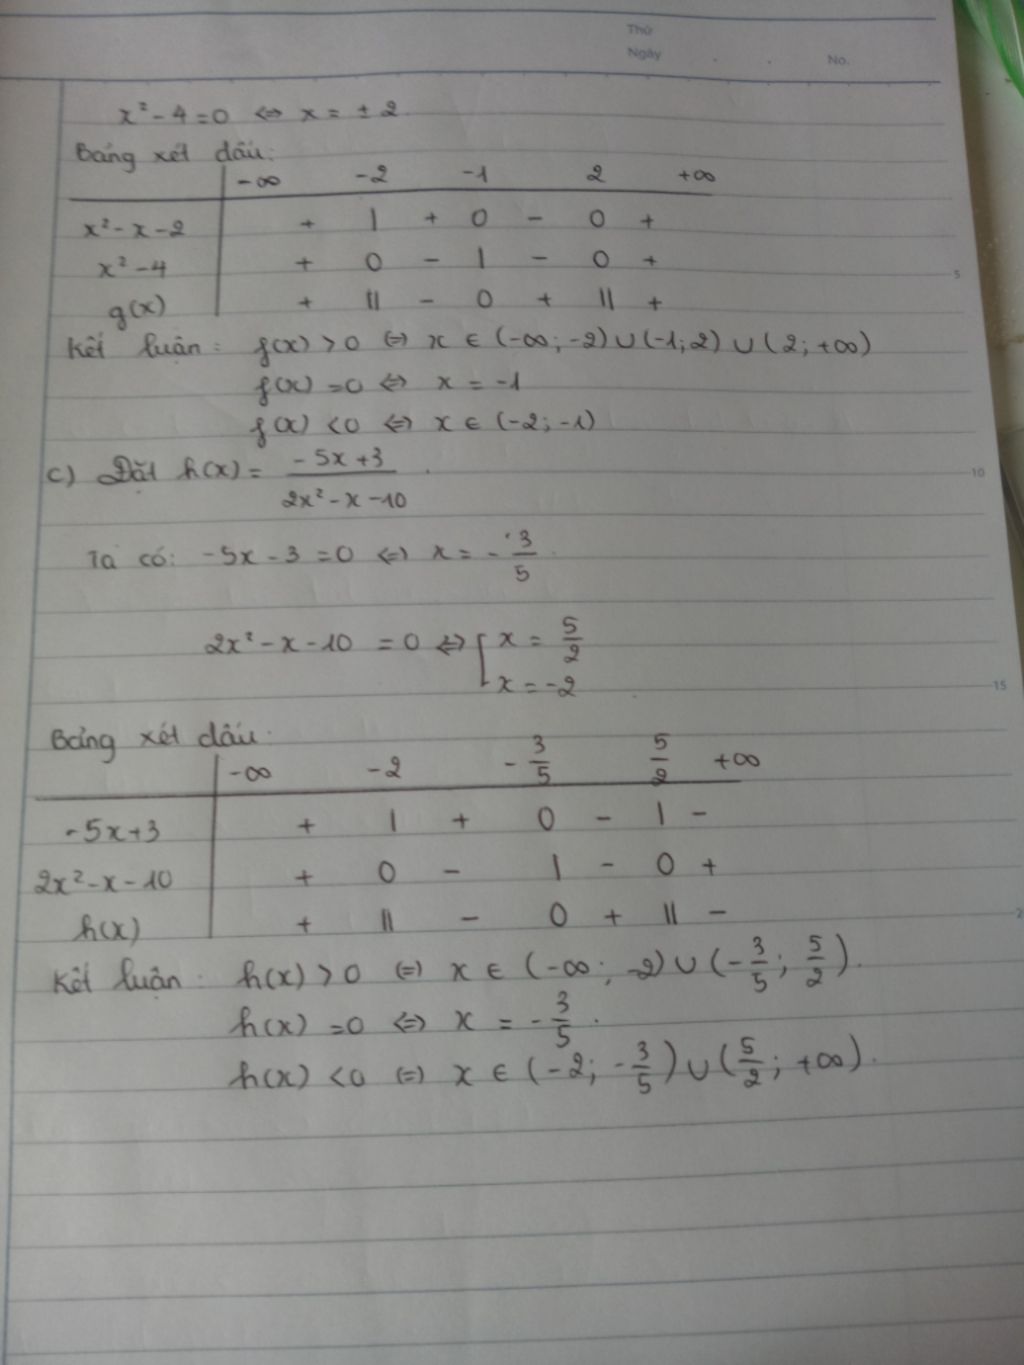 Thứ
Ngày . . No.
x² - 4 = 0 ⇔ x = ± 2.
Bảng xét dấu:
-∞ -2 -1 2 +∞
x² - x - 2 + | + 0 - 0 +
x² - 4 + 0 - | - 0 +
g(x) + || - 0 + || +
5
Kết luận: f(x) > 0 ⇔ x ∈ (-∞; -2) ∪ (-1; 2) ∪ (2; +∞)
f(x) = 0 ⇔ x = -1
f(x) < 0 ⇔ x ∈ (-2; -1)
c) Đặt h(x) = (-5x + 3)/(2x² - x - 10) .
10
Ta có: -5x - 3 = 0 ⇔ x = -3/5 .
2x² - x - 10 = 0 ⇔ [ x = 5/2
x = -2
15
Bảng xét dấu:
-∞ -2 -3/5 5/2 +∞
-5x + 3 + | + 0 - | -
2x² - x - 10 + 0 - | - 0 +
h(x) + || - 0 + || -
2
Kết luận: h(x) > 0 ⇔ x ∈ (-∞; -2) ∪ (-3/5; 5/2).
h(x) = 0 ⇔ x = -3/5 .
h(x) < 0 ⇔ x ∈ (-2; -3/5) ∪ (5/2; +∞).